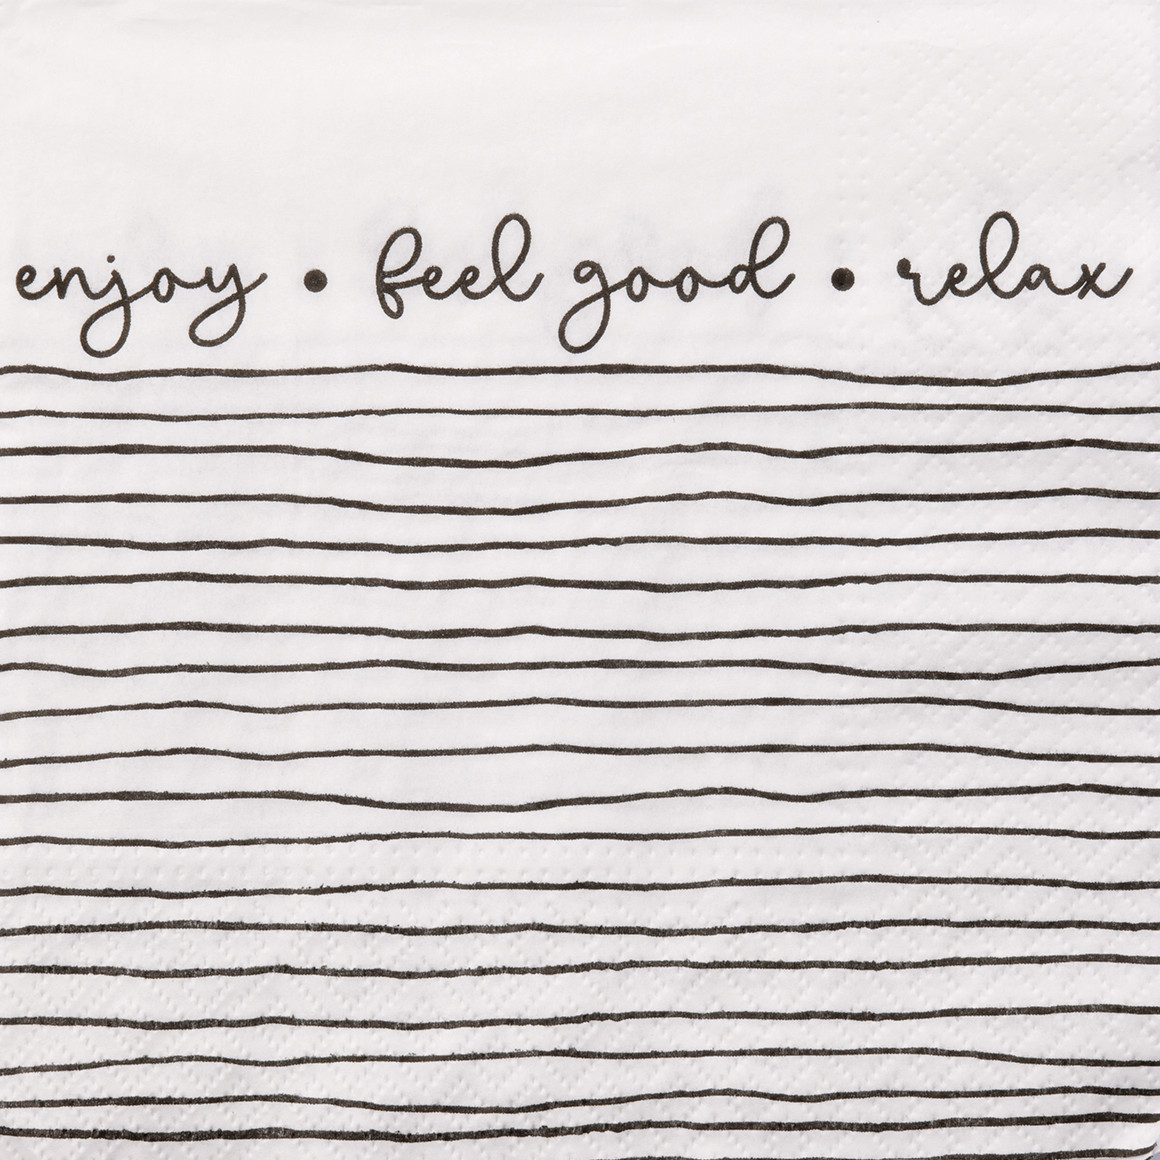 enjoy • feel good • relax